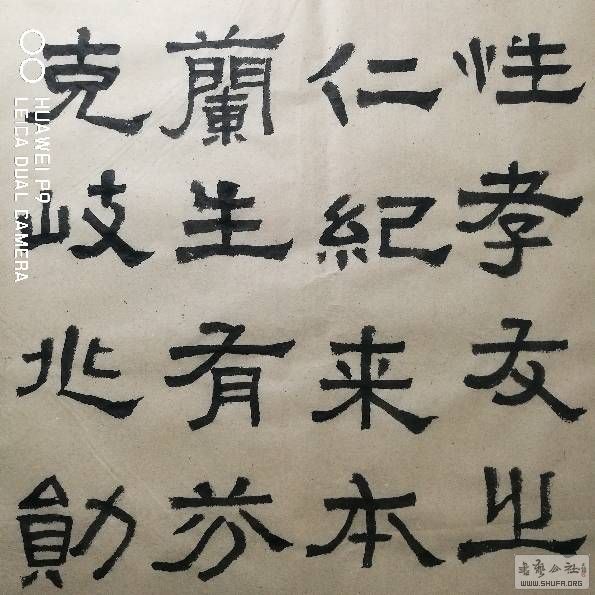 性孝友之
仁紀来本
蘭生有芬
克岐兆勛
HUAWEI P9
LEICA DUAL CAMERA
书艺公社
WWW.SHUFA.ORG